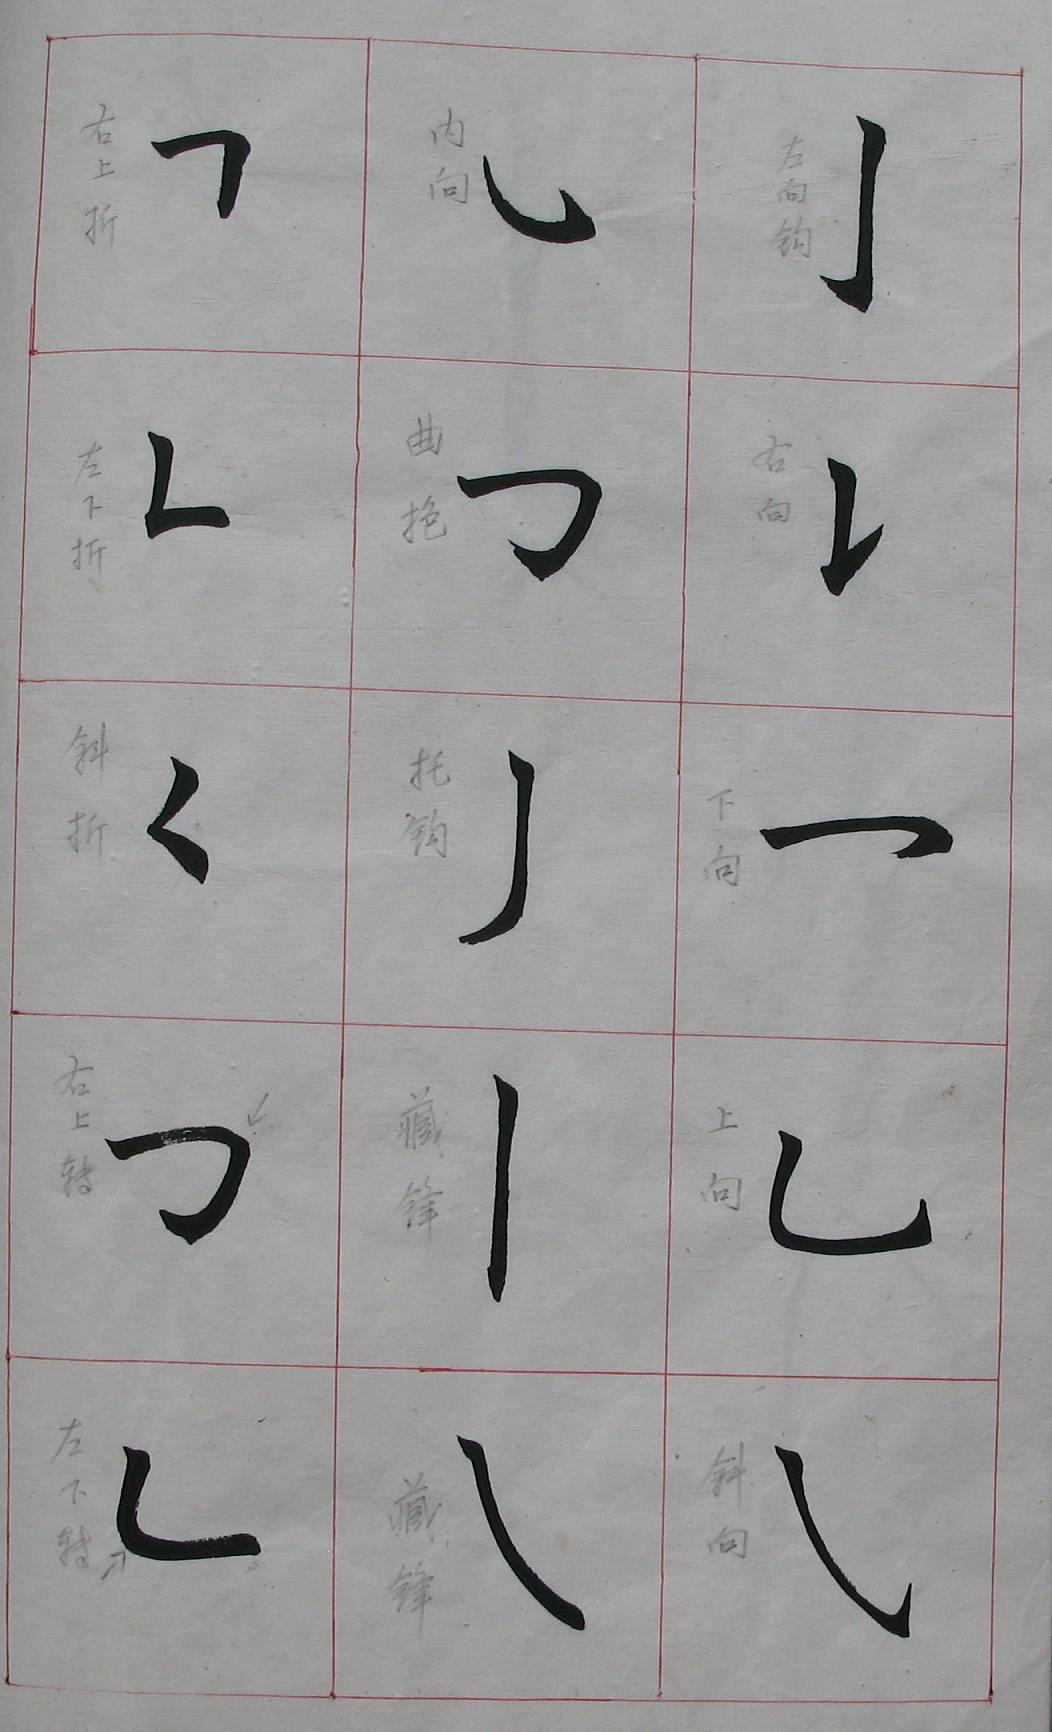 左向钩
右向
下向
上向
斜向
内向
曲抱
托钩
藏锋
藏锋
右上折
左下折
斜折
右上转
左下转